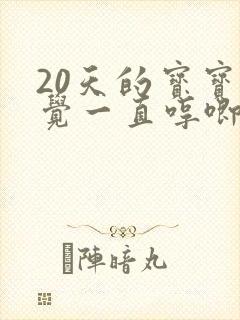 20天的寳寳
覺一直哼唧
陣暗丸